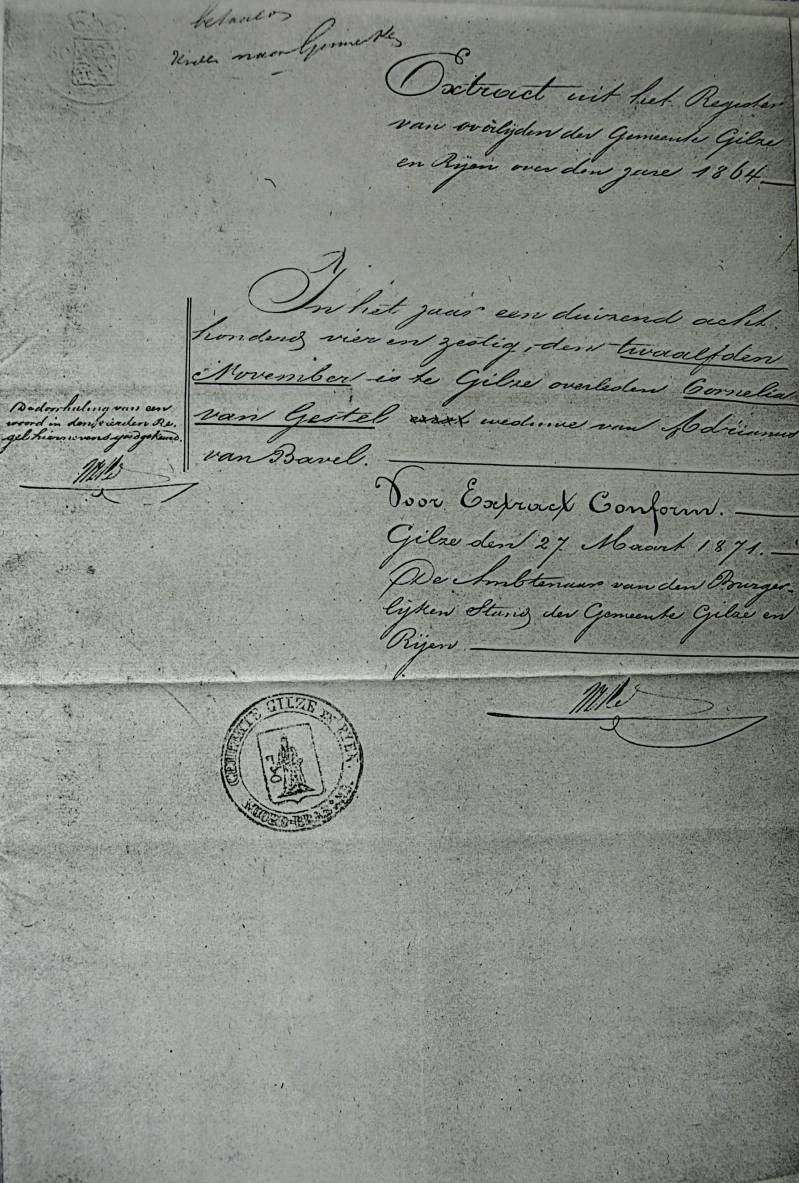 betaald
naar Gemeente
Extract uit het Register
van overlijden der Gemeente Gilze
en Rijen over den jare 1864.
In het jaar een duizend acht
honderd vier en zestig, den twaalfden
November is te Gilze overleden Cornelia
van Gestel weduwe van Adrianus
van Bavel.
De doorhaling van een
woord in den vierden Re-
gel hiernevens goedgekeurd.
Voor Extract Conform.
Gilze den 27 Maart 1871.
De Ambtenaar van den Burger-
lijken Stand der Gemeente Gilze en
Rijen
GEMEENTE GILZE EN RYEN.
NOORD-BRABAND.